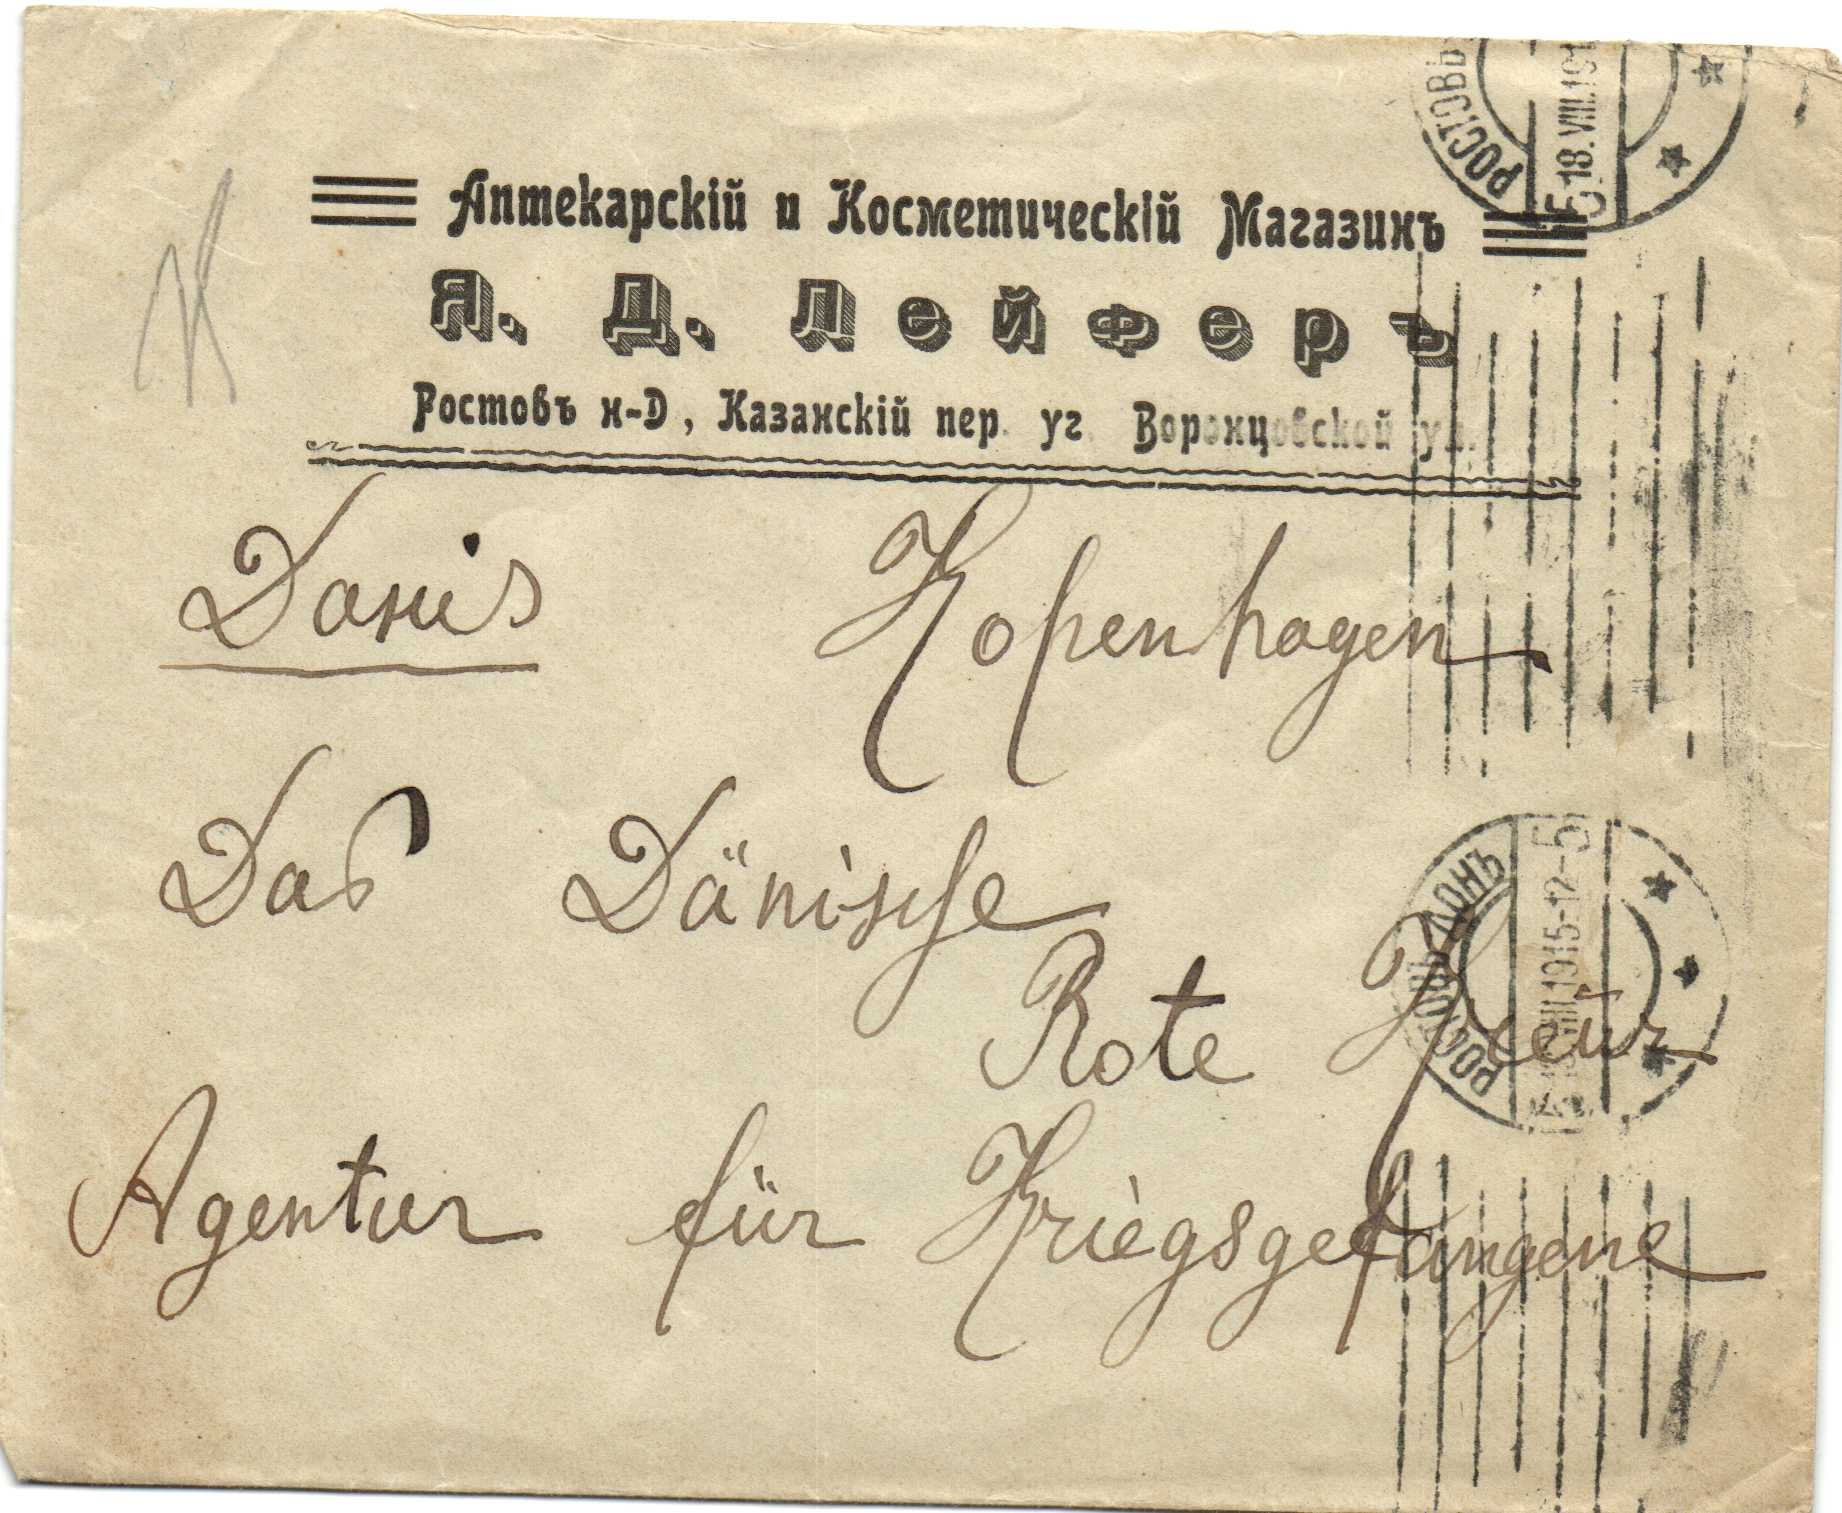 Аптекарскій и Косметическій Магазинъ
Я. Д. Лейферъ
Ростовъ н-Д, Казанскій пер. уг. Воронцовской ул.
Данія Kopenhagen
Das Dänische
Rote Kreuz
Agentur für Kriegsgefangene
РОСТОВЪ
18.VIII.191
РОСТОВЪ ДОНЪ
VIII.1915-12-5